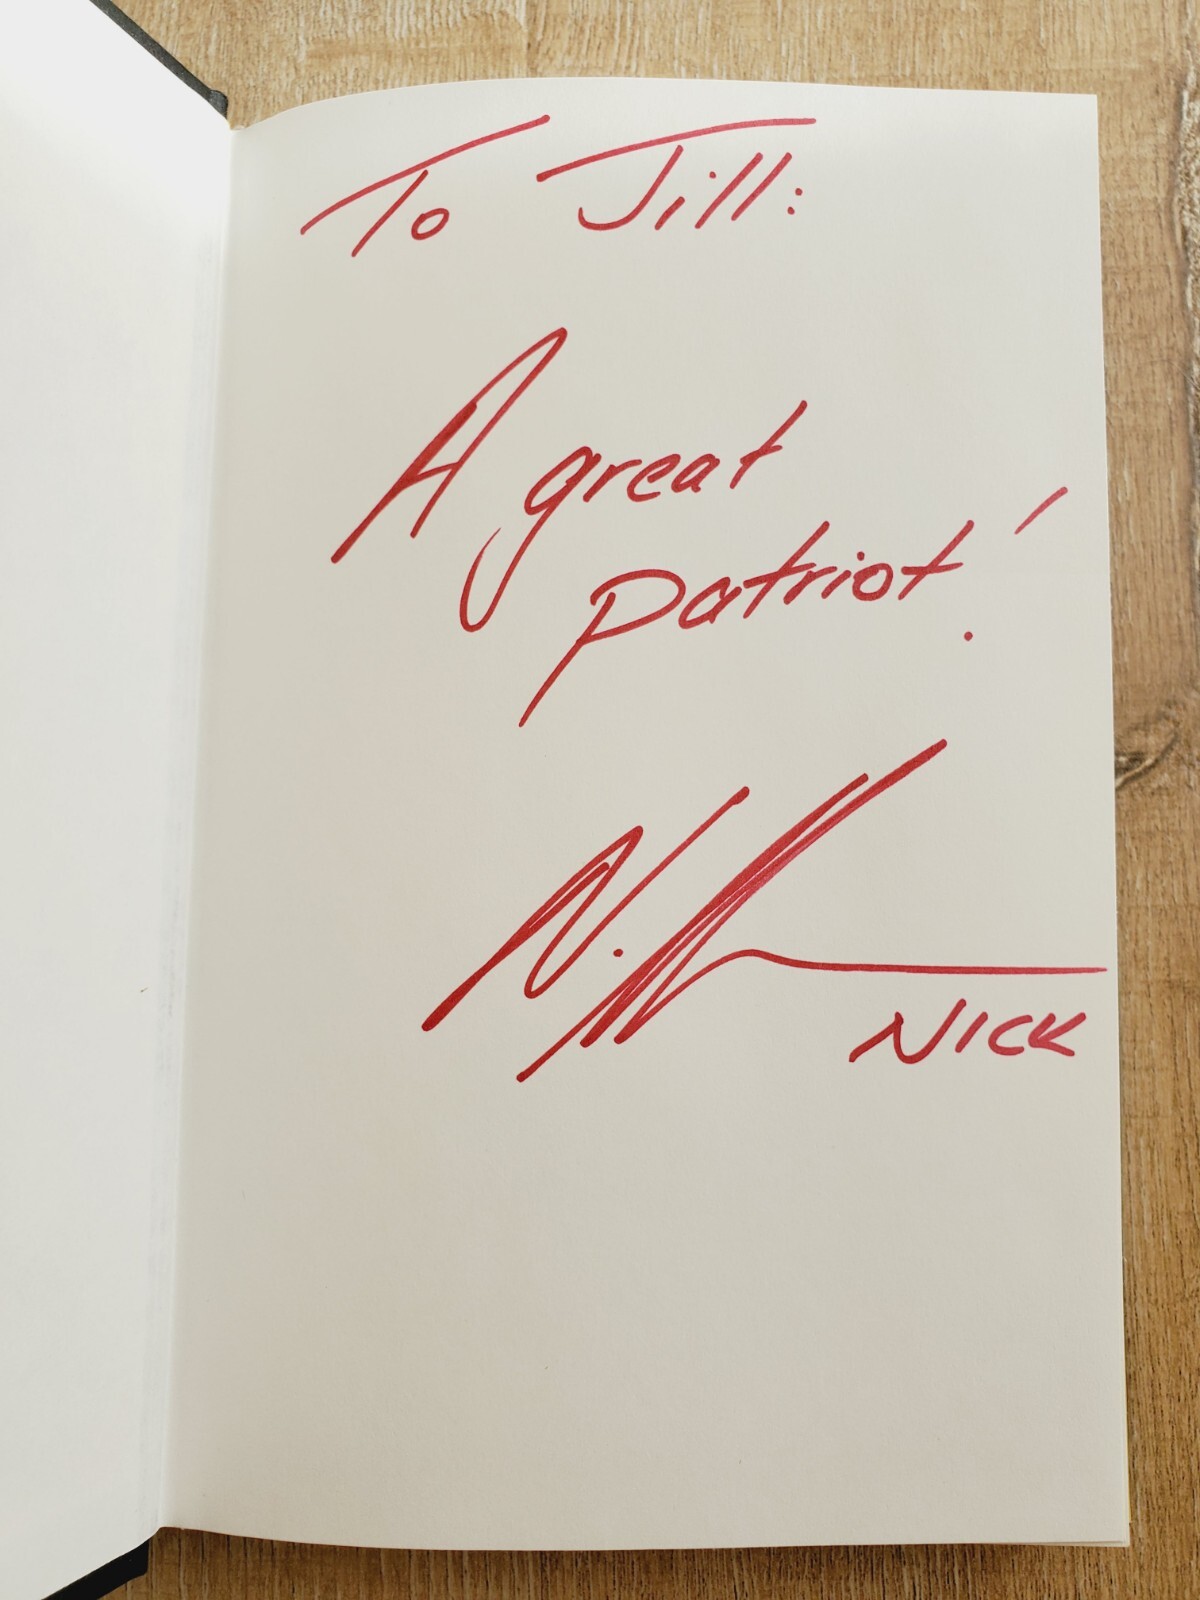 To Jill:
A great
patriot!
N.
NICK